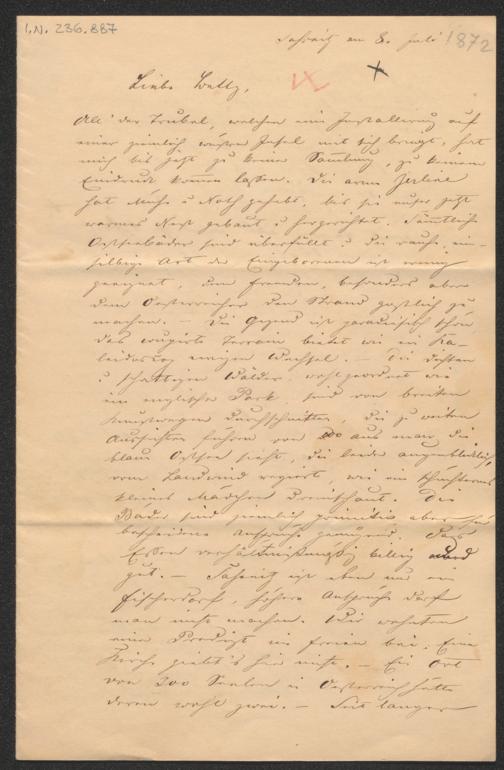 I.N. 236.887
Saßnitz am 8. Juli 1872
Liebe Betty,
All' der Trubel, welchen eine Installierung auf
einer ziemlich wüsten Insel mit sich bringt, hat
mich bis jetzt zu keiner Samlung, zu keinem
Eindruck kommen lassen. Die arme
hat Mühe u Noth gehabt, bis sie unser jetzt
warmes Nest gebaut u hergerichtet. Sämtliche
Ostseebäder sind überfüllt u die rauhe, ein-
silbige Art der Eingeborenen ist wenig
geeignet, dem Fremden, besonders aber
dem Oesterreicher den Strand gastlich zu
machen. — Die Gegend ist paradiesisch schön
das coupirte Terrain bietet wie ein Ka-
leidoscop ewigen Wechsel. — Die dichten
u schattigen Wälder, wohlgeordnet wie
ein englischer Park, sind von breiten
Kunstwegen durchschnitten, die zu weiten
Aussichten führen von wo aus man die
blaue Ostsee sieht, die leider augenblicklich,
vom Landwind regiert, wie ein schüchternes
kleines Mädchen dreinschaut. Die
Bäder sind ziemlich primitiv aber für
bescheidene Ansprüche genügend. Das
Essen verhältnißmäßig billig und
gut. — Saßnitz ist eben nur ein
Fischerdorf, höhere Ansprüche darf
man nicht machen. Wir wohnten
einer Predigt im freien bei. Eine
Kirche giebt's hier nicht. — Ein Ort
von 200 Seelen in Oesterreich hätte
deren wohl zwei. — Seit langer